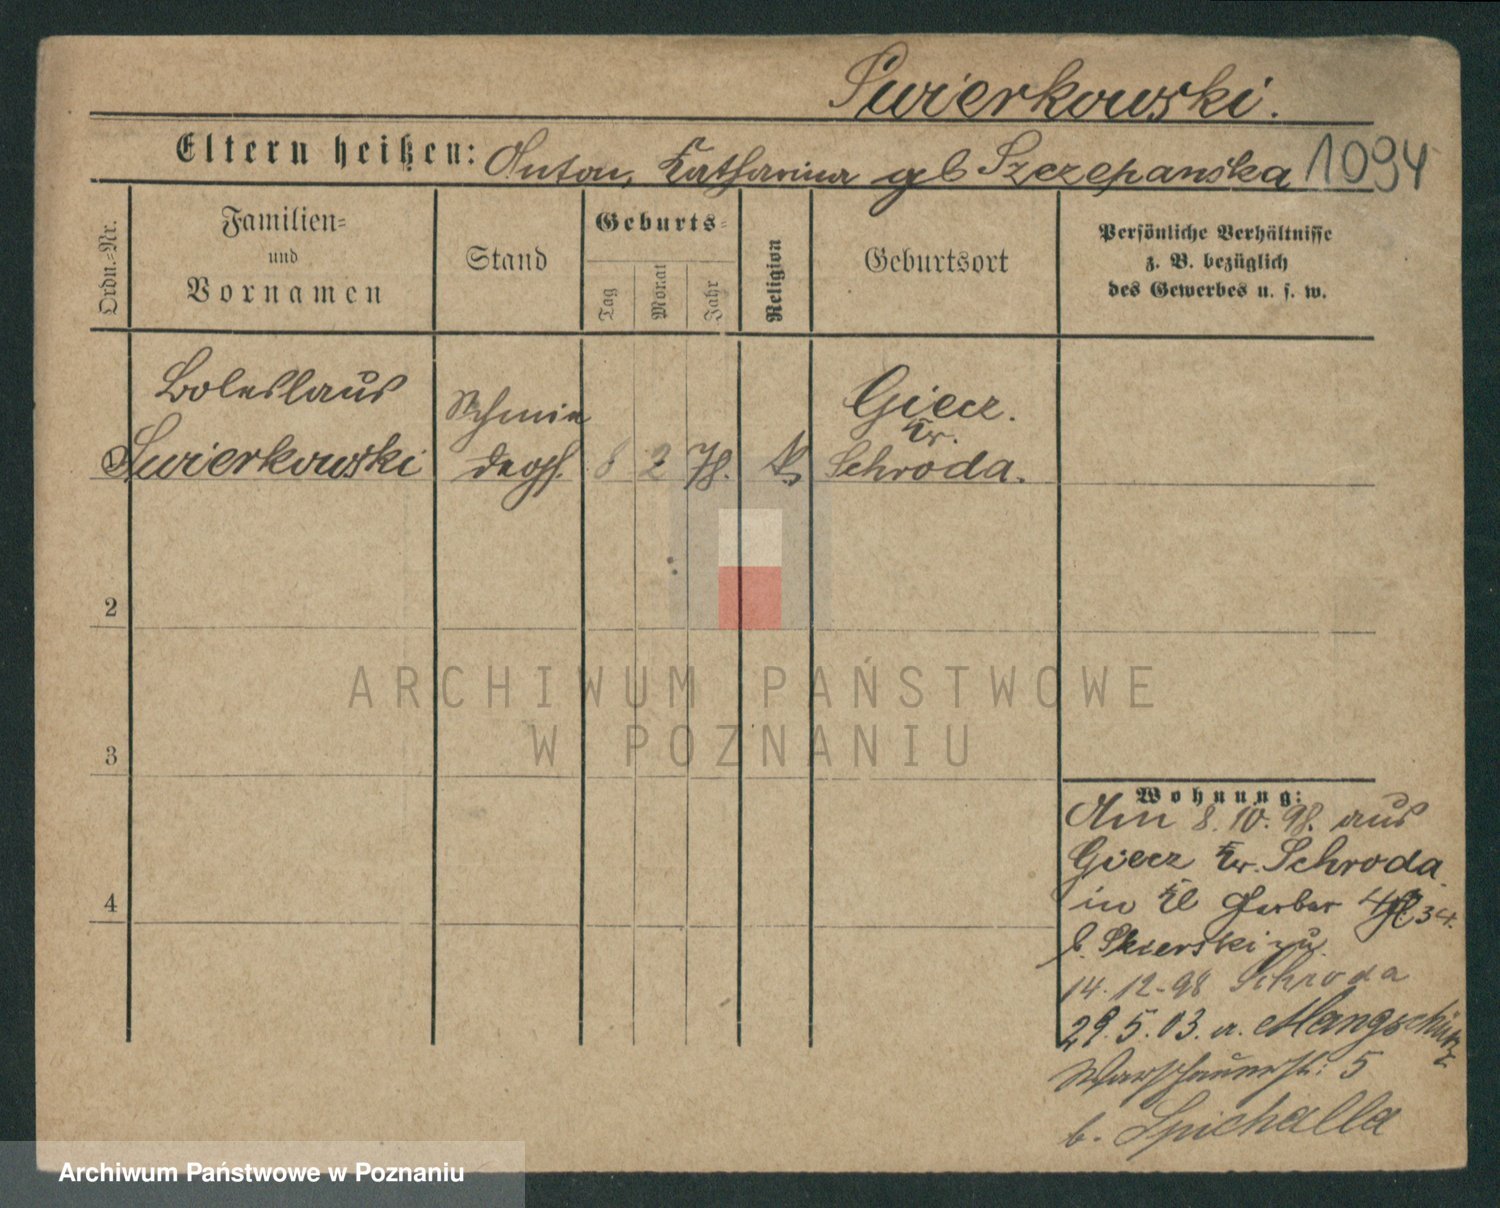 Swierkowski.
Eltern heißen: Anton, Katharina gb Szczepanska 1094
Ordn.-Nr.
Familien-
und
Vornamen
Stand
Geburts-
Tag
Monat
Jahr
Religion
Geburtsort
Persönliche Verhältnisse
z. B. bezüglich
des Gewerbes u. s. w.
Boleslaus
Swierkowski
Schmie
degs.
8 2 78.
Giecz.
Kr.
Schroda.
2
3
4
ARCHIWUM PAŃSTWOWE
W POZNANIU
Wohnung:
Am 8.10.98. aus
Giecz Kr. Schroda
in Kl Gerber 34.
b. Skierski zu
14.12-98 Schroda
29.5.03. a. Mangschütz
Warschauerst: 5
b. Spichalla
Archiwum Państwowe w Poznaniu